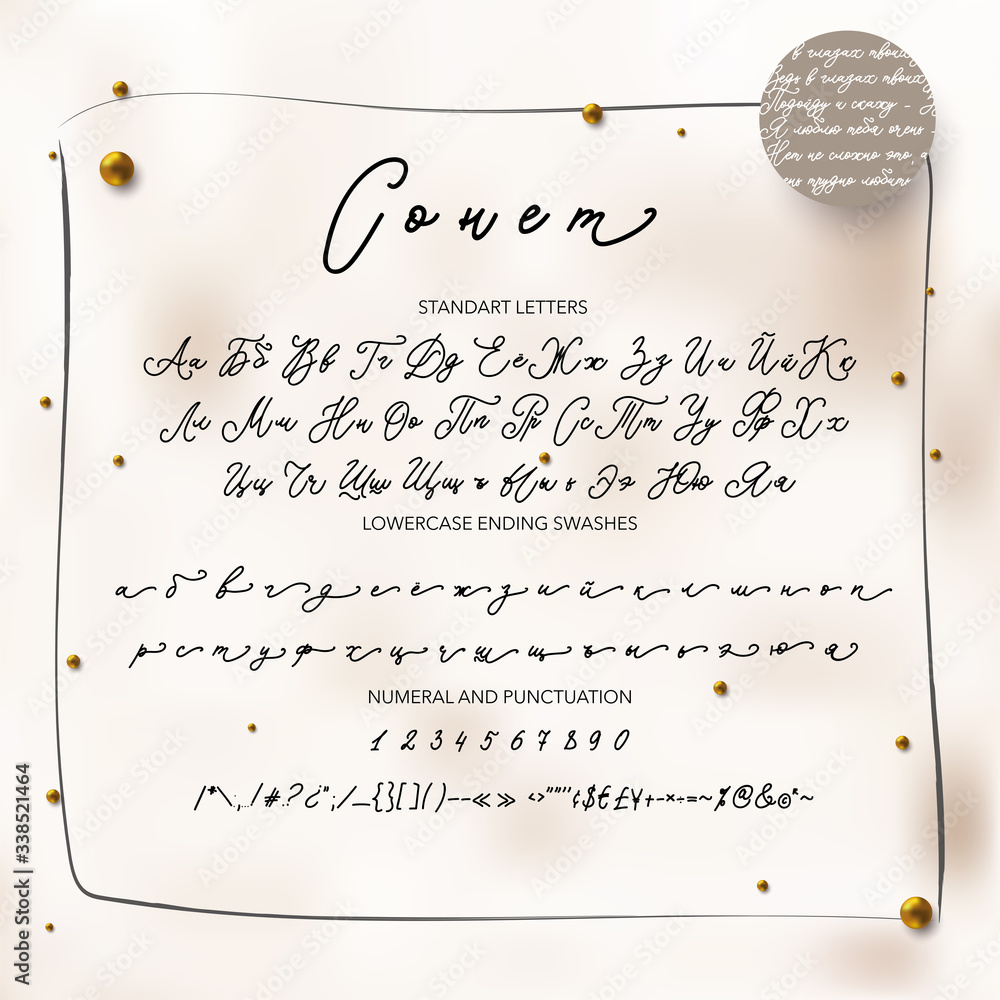 в глазах твоих
Ведь в глазах твоих
Подойду и скажу -
Я люблю тебя очень -
Нет не сложно это, а
ень трудно любить
Сонет
STANDART LETTERS
Аа Бб Вв Гг Дд Её Жж Зз Ии Йй Кк
Лл Мм Нн Оо Пп Рр Сс Тт Уу Фф Хх
Цц Чч Шш Щщ ъ Ыы ь Ээ Юю Яя
LOWERCASE ENDING SWASHES
а б в г д е ё ж з и й к л м н о п
р с т у ф х ц ч ш щ ъ ы ь э ю я
NUMERAL AND PUNCTUATION
1 2 3 4 5 6 7 8 9 0
|*\:,...!#.?¿";/_{}[]()--«» <>"""¢$€£¥+-×÷=~%@&©®~
Adobe Stock | #338521464